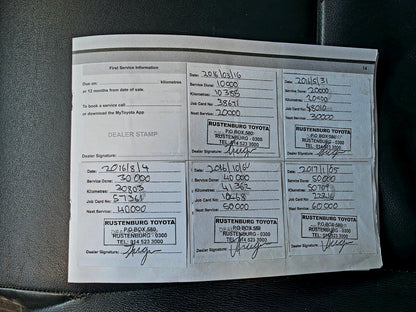 First Service Information
14
Due on: kilometres
or 12 months from date of sale.
To book a service call
or download the MyToyota App
DEALER STAMP
Dealer Signature:
Date: 2016/03/16
Service Done: 10000
Kilometres: 10385
Job Card No: 38671
Next Service: 20000
RUSTENBURG TOYOTA
P.O.BOX 580
RUSTENBURG - 0300
TEL: 014 523 3000
Dealer Signature:
Date: 2016/5/31
Service Done: 20000
Kilometres:
Job Card No: 48010
Next Service: 30000
RUSTENBURG TOYOTA
P.O.BOX 580
RUSTENBURG - 0300
TEL: 014 523 3000
Dealer Signature:
Date: 2016/8/4
Service Done: 30000
Kilometres: 30803
Job Card No: 57361
Next Service: 40000
RUSTENBURG TOYOTA
P.O.BOX 580
RUSTENBURG - 0300
TEL: 014 523 3000
Dealer Signature:
Date:
Service Done: 40000
Kilometres: 41362
Job Card No:
Next Service: 50000
RUSTENBURG TOYOTA
P.O.BOX 580
RUSTENBURG - 0300
TEL: 014 523 3000
Dealer Signature:
Date: 2017/1/05
Service Done: 50000
Kilometres: 50709
Job Card No:
Next Service: 60000
RUSTENBURG TOYOTA
P.O.BOX 580
RUSTENBURG - 0300
TEL: 014 523 3000
Dealer Signature: